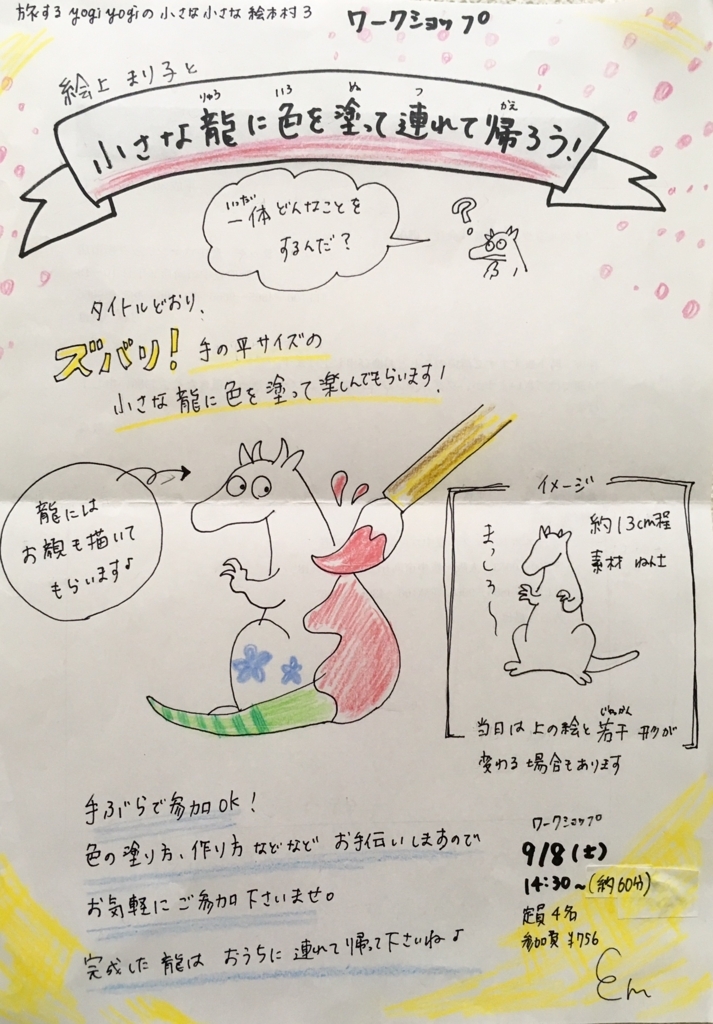 旅する yogi yogiの 小さな小さな 絵本村 3
ワークショップ
絵上 まり子と
小さな龍に色を塗って連れて帰ろう!
りゅう いろ ぬ つ かえ
いったい
一体どんなことを
するんだ?
?
タイトルどおり、
ズバリ! 手の平サイズの
小さな龍に色を塗って楽しんでもらいます!
龍には
お顔も描いて
もらいます♪
イメージ
まっしろ〜
約13cm程
素材 ねん土
じゃっかん
当日は上の絵と若干 形が
変わる場合もあります
手ぶらで参加OK!
色の塗り方、作り方などなど お手伝いしますので
お気軽にご参加下さいませ。
完成した龍は おうちに連れて帰って下さいね♪
ワークショップ
9/8(土)
14:30~(約60分)
定員 4名
参加費 ¥756
Em